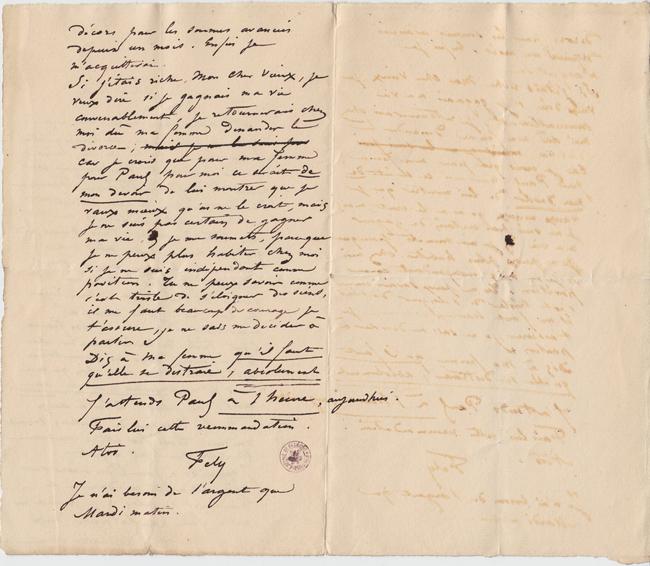 décors pour les sommes avancées
depuis un mois. Enfin je
m'acquitterai.
Si j'étais riche, Mon cher Vieux, je
veux dire si je gagnais ma vie
convenablement, je retournerais chez
moi dût ma femme demander le
divorce; mais je ne le suis pas
car je crois que pour ma femme
pour Paul pour moi ce serait de
mon devoir de leur montrer que je
vaux mieux qu'on ne le croit, mais
je ne suis pas certain de gagner
ma vie, & je me soumets, parceque
je ne peux plus habiter chez moi
si je ne suis indépendant comme
position. Tu ne peux savoir comme
c'est triste de s'éloigner des siens,
il me faut beaucoup de courage je
t'assure, je ne sais me décider à
partir.
Dis à ma femme qu'il faut
qu'elle se distraie, absolument
J'attends Paul à 1 heure, aujourdhui.
Fais lui cette recommandation.
A toi.
Fély
Je n'ai besoin de l'argent que
Mardi matin.